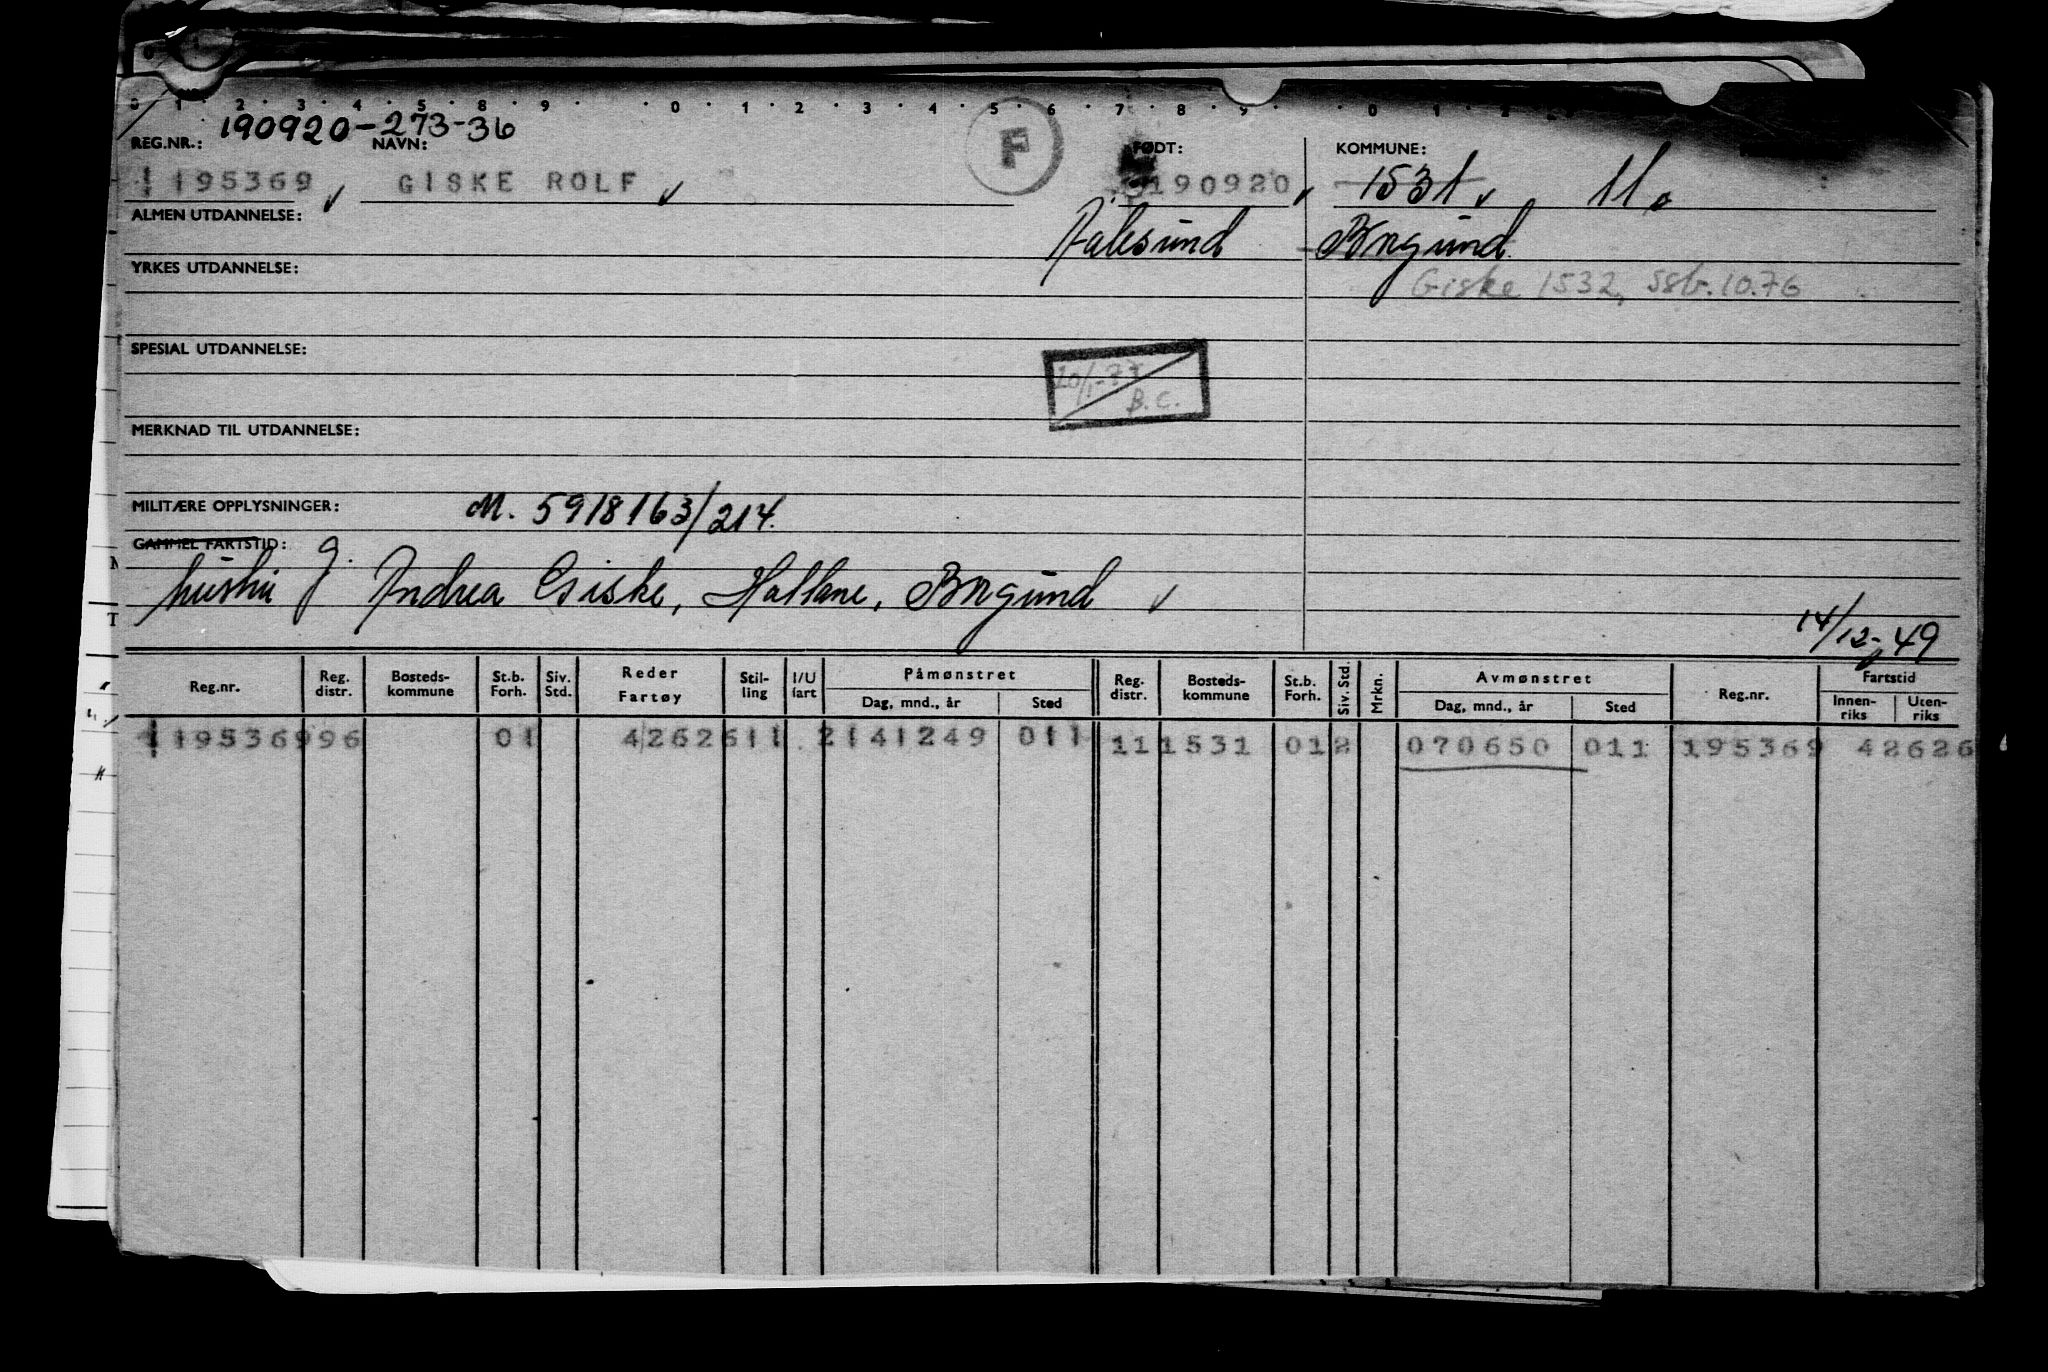 0 1 2 3 4 5 6 7 8 9 0 1 2 3 4 5 6 7 8 9 0 1 2
190920-273-36
REG.NR.: NAVN: FØDT: KOMMUNE:
195369 GISKE ROLF F 190920 1531 11
ALMEN UTDANNELSE: Aalesund Borgund
YRKES UTDANNELSE: Giske 1532, SSb. 10.76
SPESIAL UTDANNELSE:
20/1-77
B.C.
MERKNAD TIL UTDANNELSE:
MILITÆRE OPPLYSNINGER: M. 5918163/214.
GAMMEL FARTSTID:
hustru g. Andrea Giske, Hallane, Borgund
14/12-49
Reg.nr. Reg. distr. Bosteds-kommune St.b. Forh. Siv. Std. Reder Fartøy Stil-ling I/U fart Påmønstret Dag, mnd., år Sted Reg. distr. Bosteds-kommune St.b. Forh. Siv. Std. Mrkn. Avmønstret Dag, mnd., år Sted Reg.nr. Fartstid Innen-riks Uten-riks
19536996 01 4262611 2141249 011 111531 012 070650 011 195369 42626